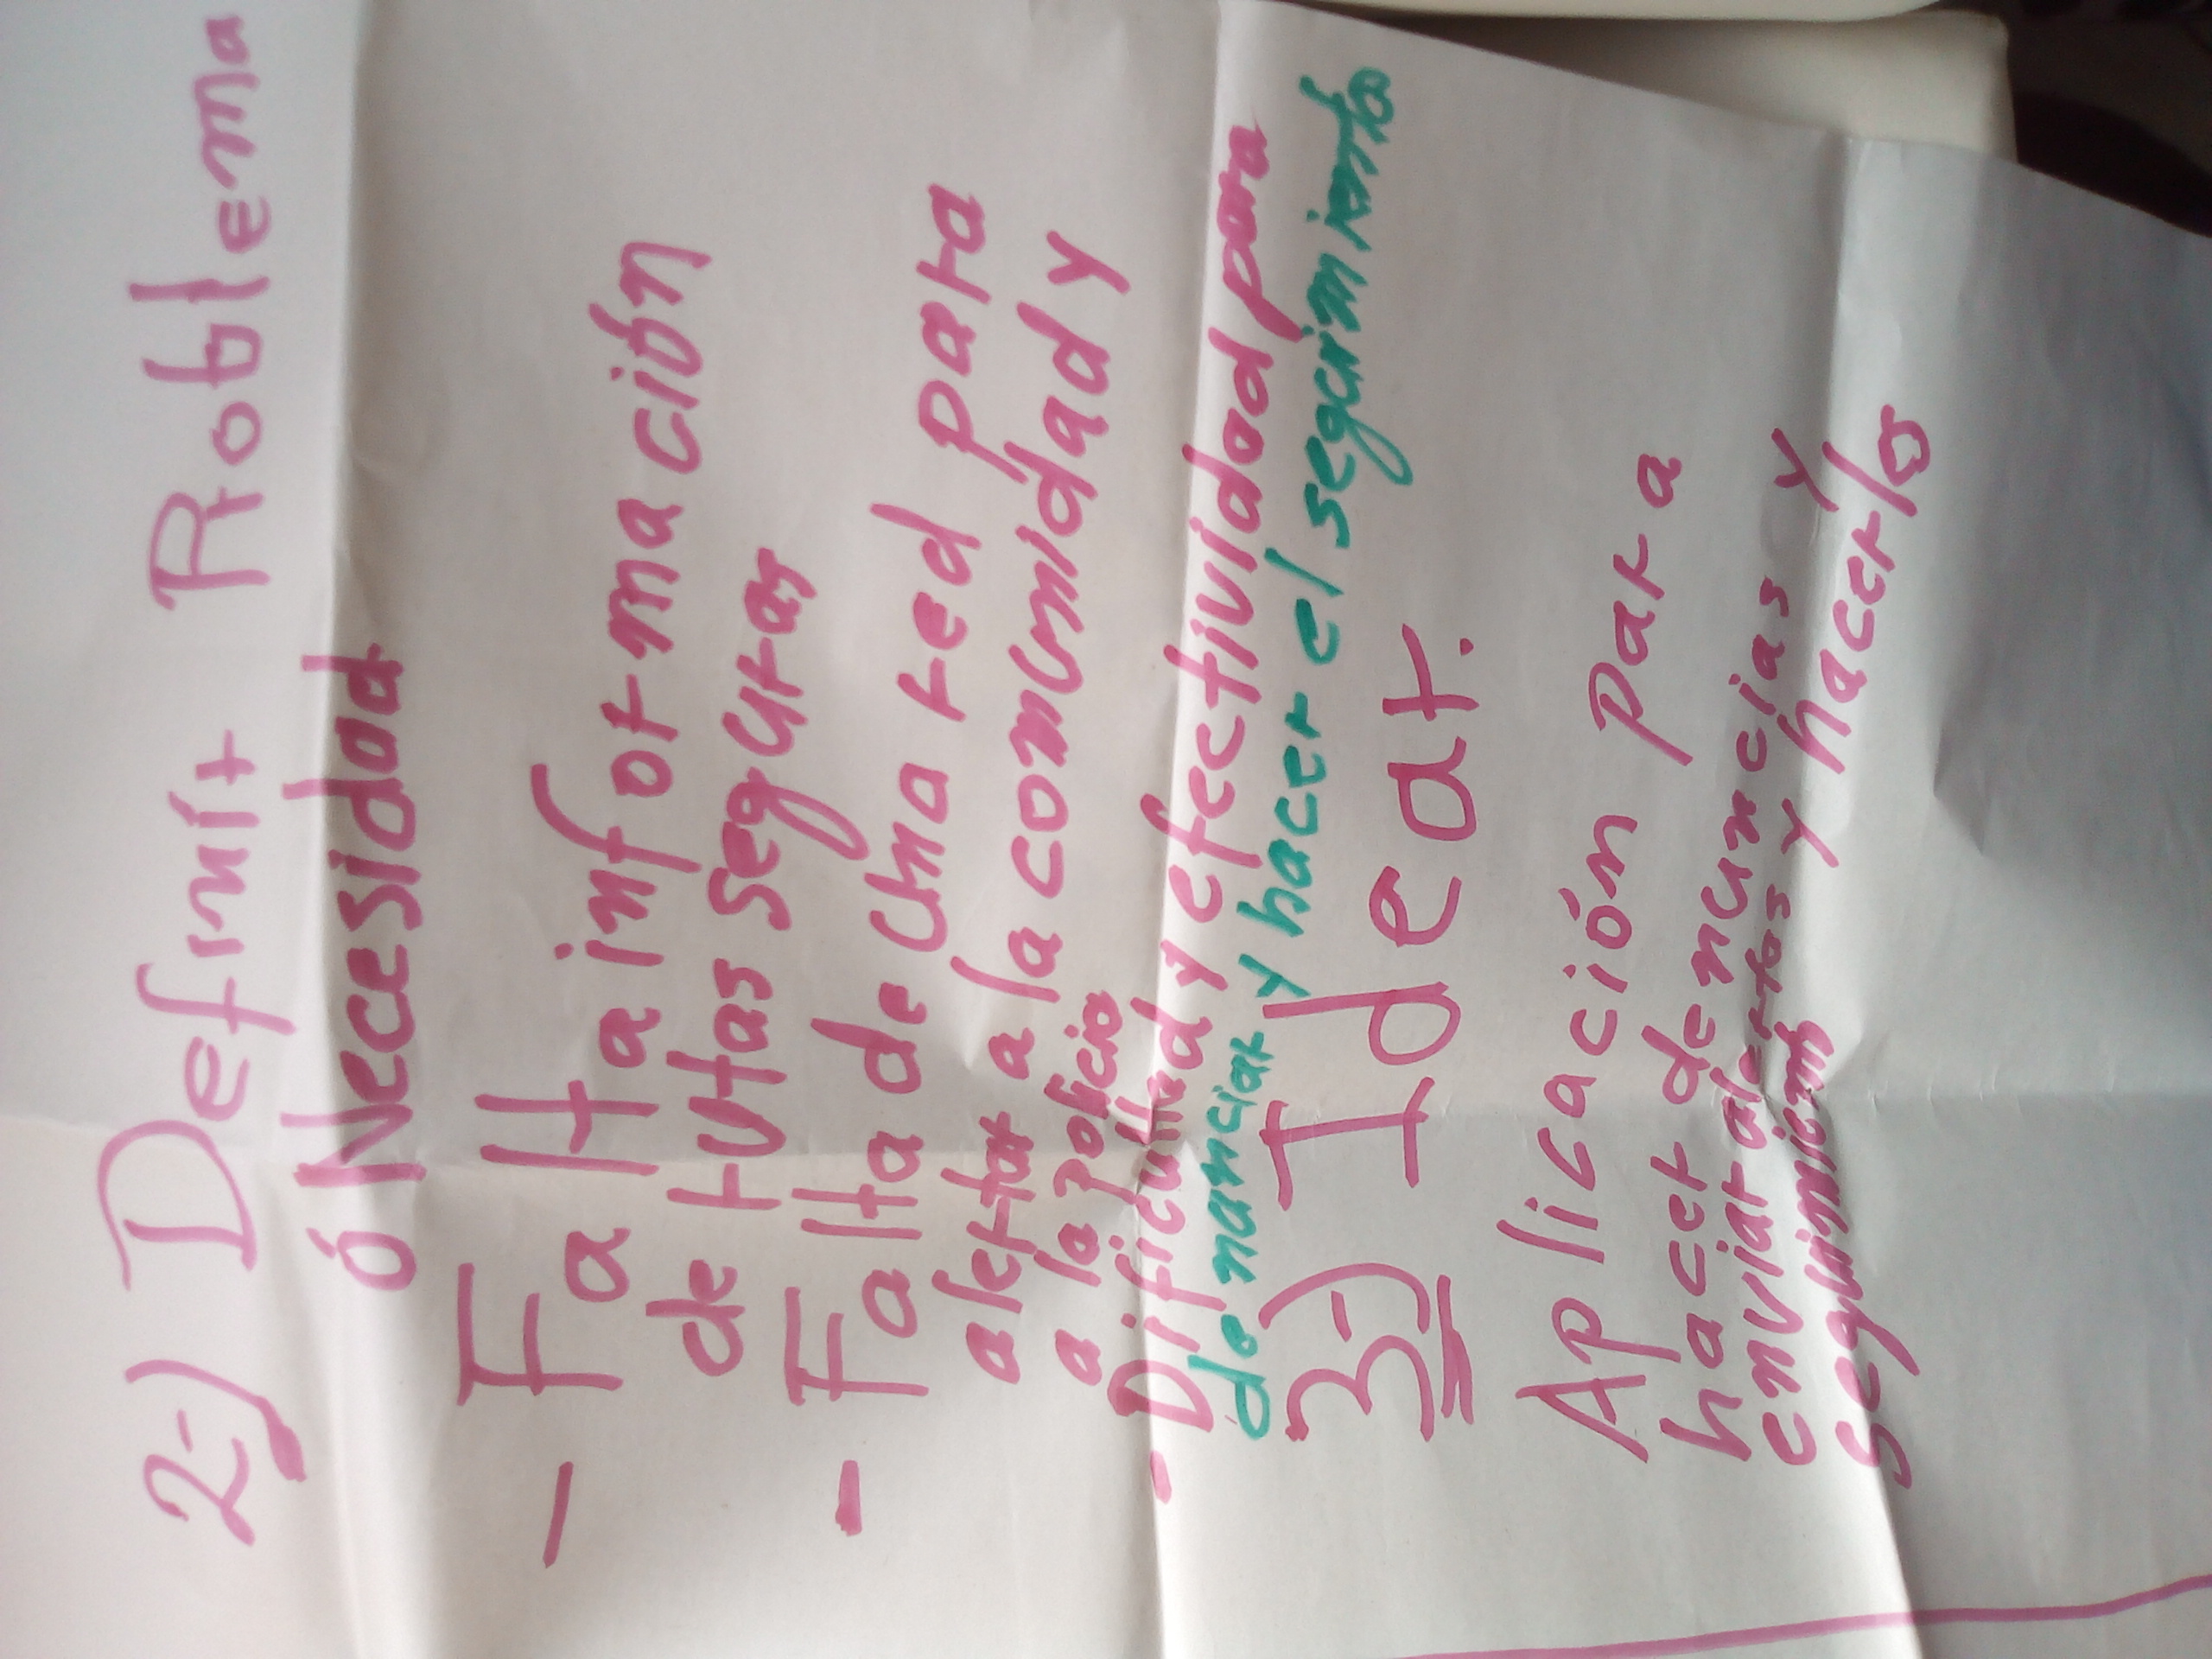 2-) Definir Problema
ó Necesidad
- Falta información
de rutas seguras
- Falta de una red para
alertar a la comunidad y
a la policia
- Dificultad y efectividad para
denanciar y hacer el seguimiento
3-) Idear.
Aplicación para
hacer denuncias y
enviar alertas y hacerlos
seguimiento